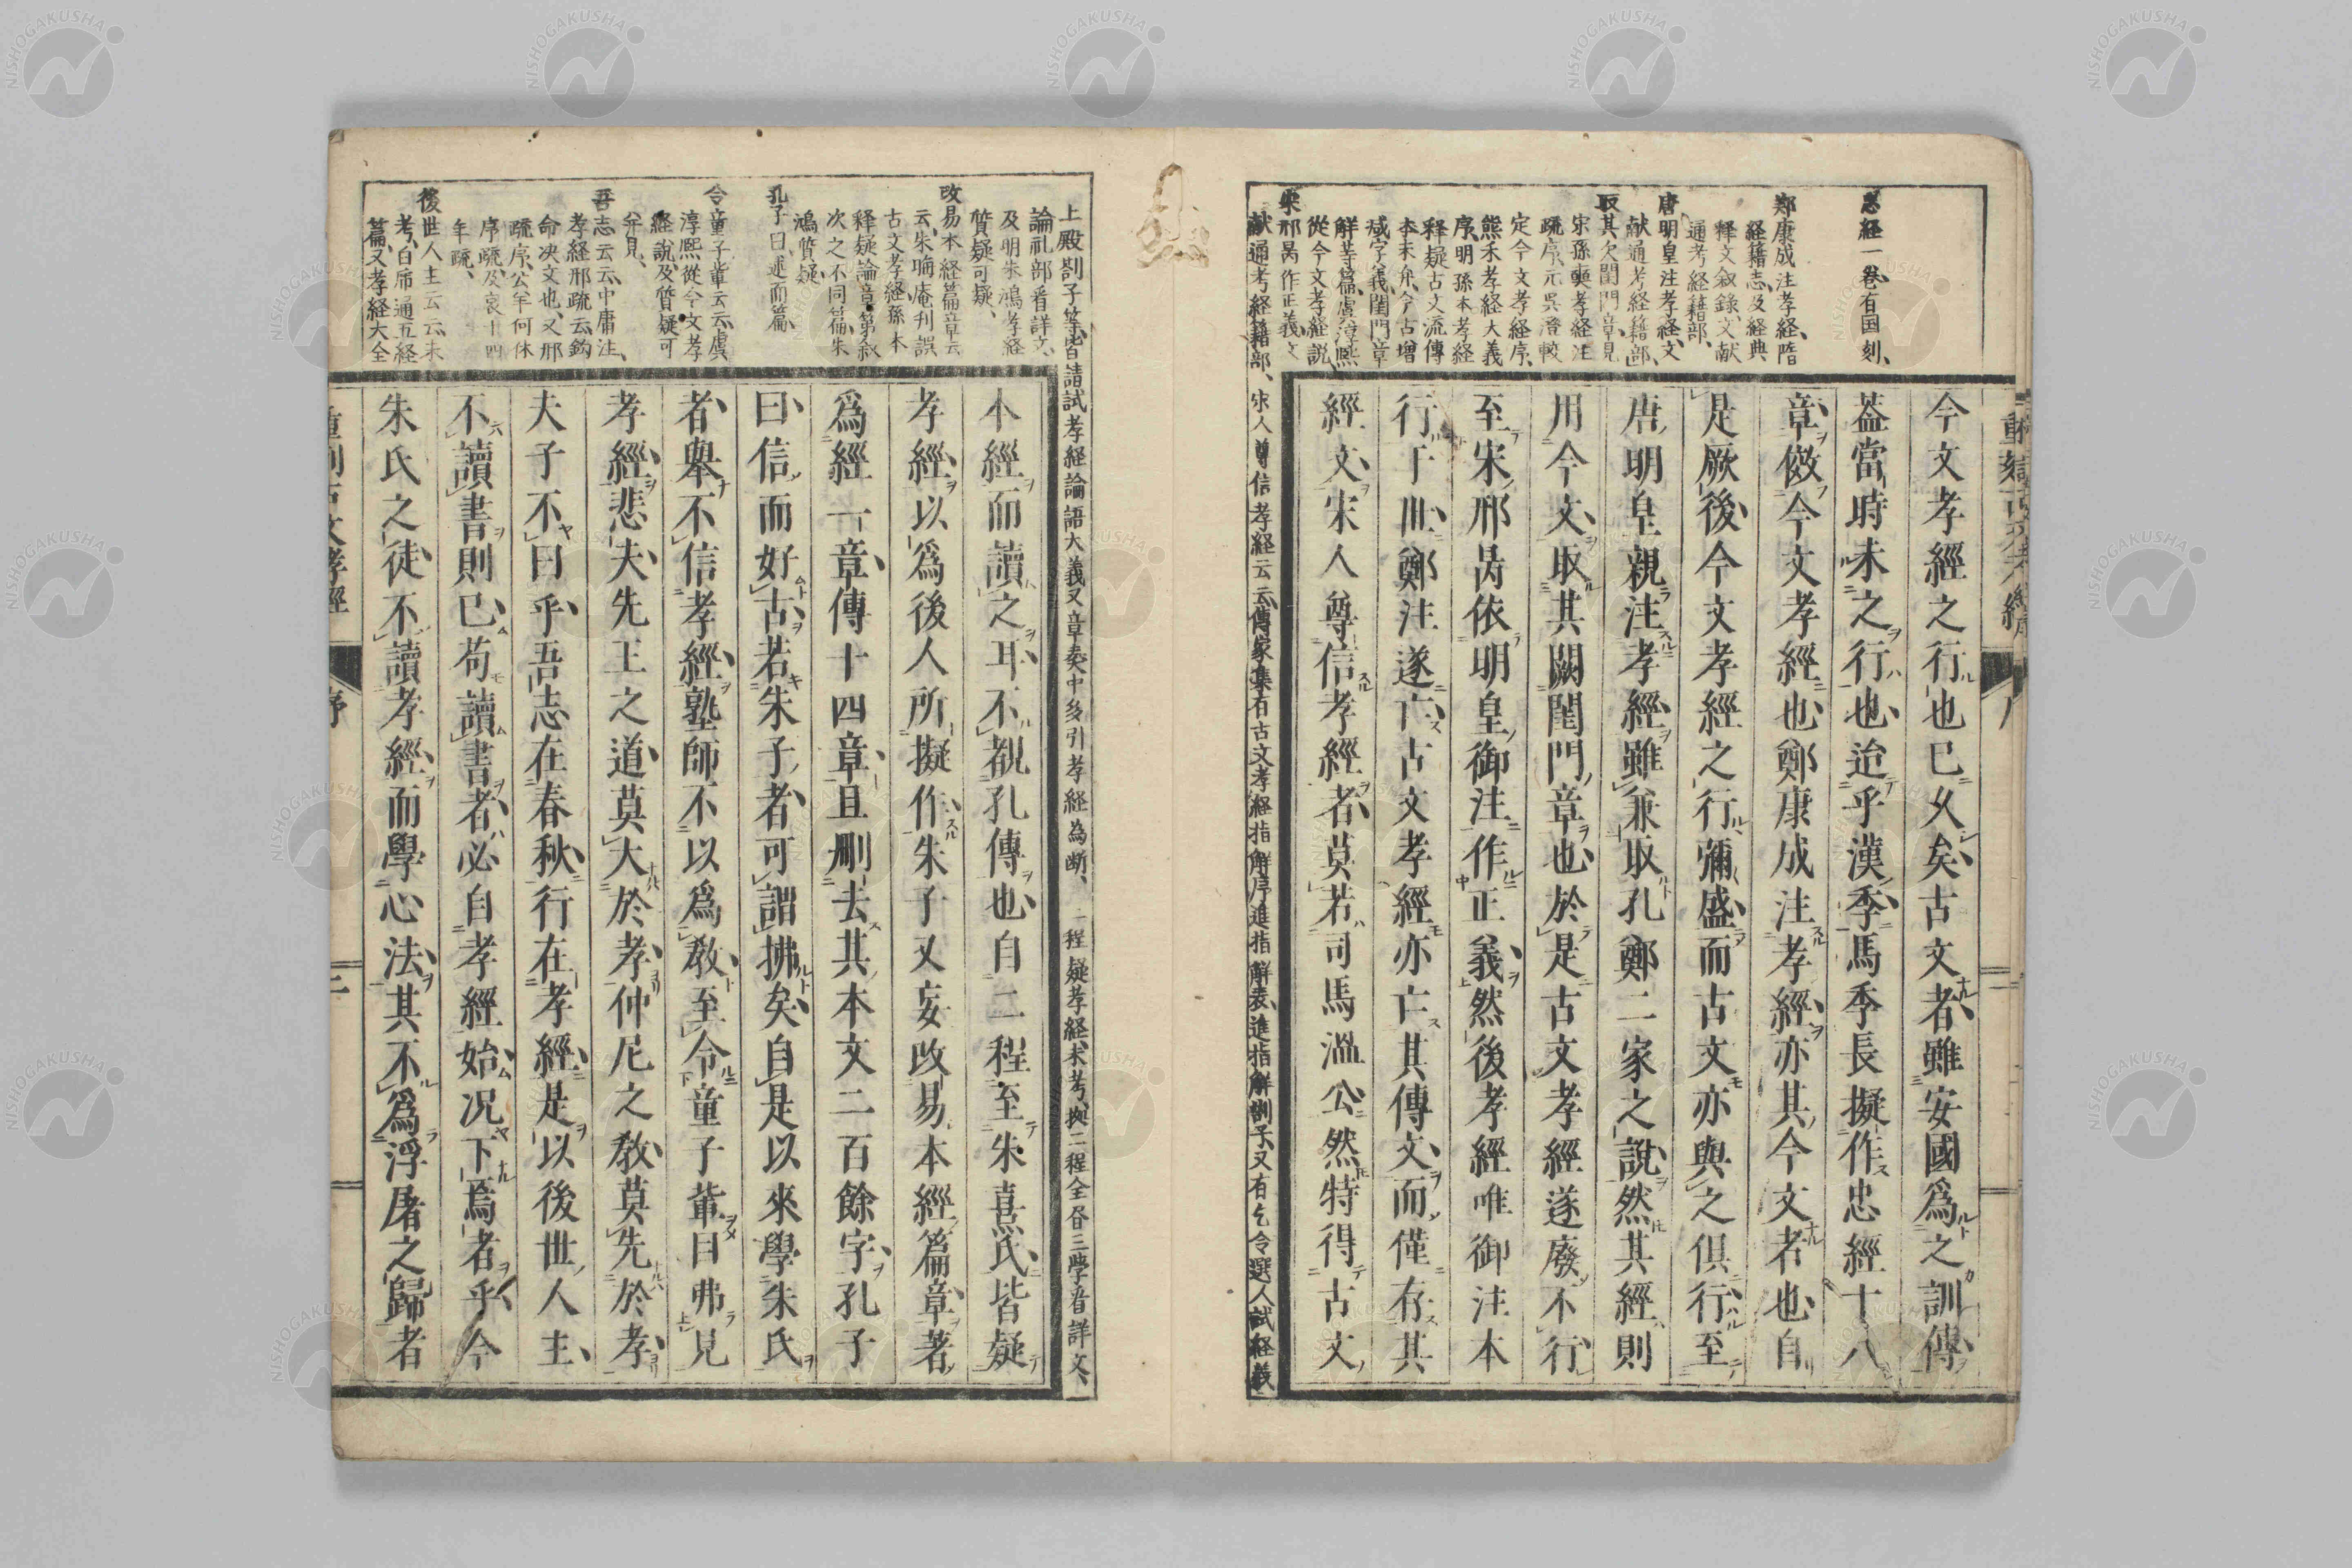 忠経一卷有国刻、
鄭康成注孝経、隋
経籍志、及経典
釈文叙録、文献
通考経籍部、
唐明皇注孝経、文
献通考経籍部、
取其欠閨門章、見
宋孫奭孝経注
疏序、元呉澄較
定今文孝経序、
熊禾孝経大義
序、明孫本孝経
釈疑古文流傳
本末弁、今古增
減字義、閨門章
解等篇、虞淳熙
從今文孝経説
宋邢昺作正義、文
献通考経籍部、宋人尊信孝経云云、傳家集有古文孝経指解序、進指解表、進指解劄子、又有乞令選人試経義
今文孝經之行也已久矣古文者雖安國爲之訓傳
蓋當時未之行也迨乎漢季馬季長擬作忠經十八
章傚今文孝經也鄭康成注孝經亦其今文者也自
是厥後今文孝經之行彌盛而古文亦與之俱行至
唐明皇親注孝經雖兼取孔鄭二家之說然其經則
用今文取其闕閨門章也於是古文孝經遂廢不行
至宋邢昺依明皇御注作正義然後孝經唯御注本
行于世鄭注遂亡古文孝經亦亡其傳文而僅存其
經文宋人尊信孝經者莫若司馬溫公然特得古文
上殿劄子等、皆請試孝経論語大義、又章奏中多引孝経為断、二程疑孝経、未考、與二程全書三學者詳文、
論礼部看詳文、
及明朱鴻孝経
質疑可疑、
改易本経篇章云
云、朱晦庵刊誤
古文孝経、孫本
釈疑論章第叙
次之不同篇、朱
鴻質疑、
孔子曰、述而篇、
令童子輩云云、虞
淳熙從今文孝
経說、及質疑可
弁見、
吾志云云、中庸注、
孝経邢疏云、鈎
命決文也、又邢
疏序、公羊何休
序疏、及哀十四
年疏、
後世人主云云、未
考、白虎通五経
篇、又孝経大全
本經而讀之耳不覩孔傳也自二程至朱熹氏皆疑
孝經以爲後人所擬作朱子又妄改易本經篇章著
爲經一章傳十四章且刪去其本文二百餘字孔子
曰信而好古若朱子者可謂拂矣自是以來學朱氏
者舉不信孝經塾師不以爲敎至令童子輩目弗見
孝經悲夫先王之道莫大於孝仲尼之敎莫先於孝
夫子不曰乎吾志在春秋行在孝經是以後世人主
不讀書則已苟讀書者必自孝經始况下焉者乎今
朱氏之徒不讀孝經而學心法其不爲浮屠之歸者
重刻古文孝經 序 二
NISHOGAKUSHA